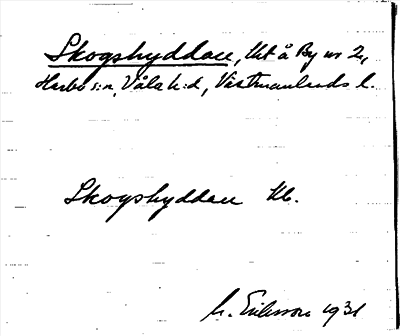 Skogshyddan, Ut å By nr 2,
Harbo s:n, Våla h:d, Västmanlands l.
Skogshyddan Ub.
M. Eriksson 1931